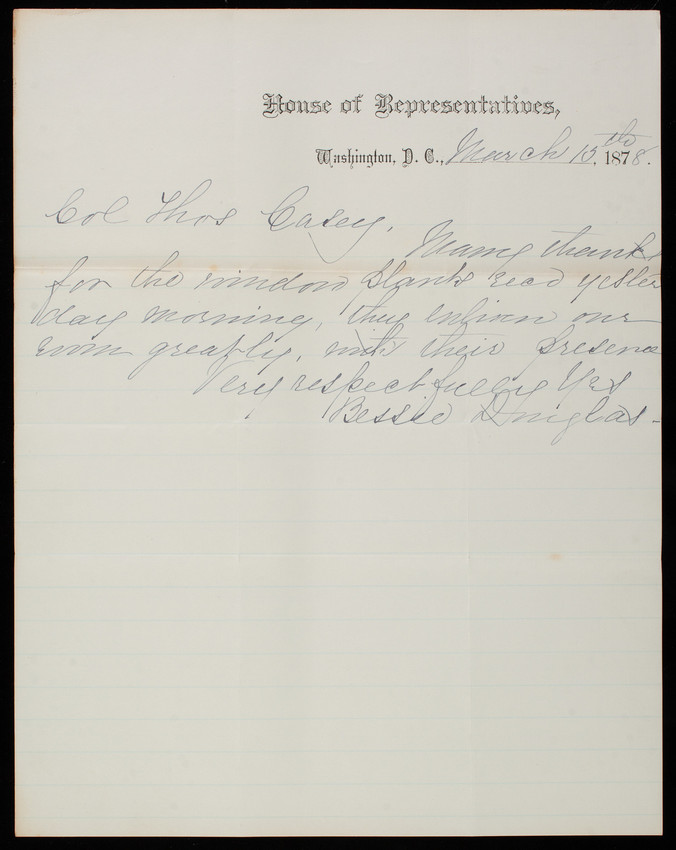 House of Representatives,
Washington, D. C., March 15th, 1878.
Col Thos Casey,
Many thanks
for the window plants recd yester
day morning, they enliven our
room greatly, with their presence
Very respectfully Yrs
Bessie Douglas-